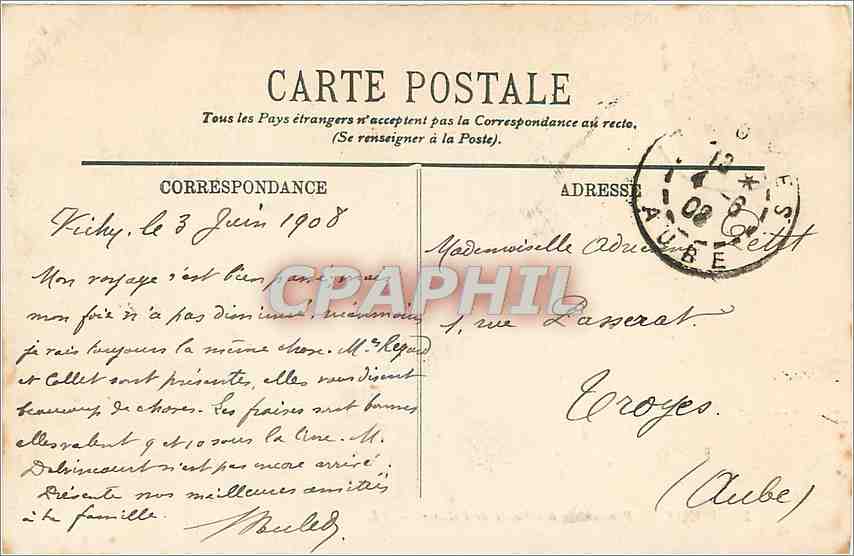 CARTE POSTALE
Tous les Pays étrangers n'acceptent pas la Correspondance au recto.
(Se renseigner à la Poste).
CORRESPONDANCE
ADRESSE
Vichy, le 3 Juin 1908
Mon voyage s'est bien passé, mais
mon foie n'a pas diminué, néanmoins
je vais toujours la même chose. Mes
et Collet sont présentes, elles vous disent
beaucoup de choses. Les fraises sont bonnes
elles valent 9 et 10 sous la livre. M.
n'est pas encore arrivé.
Présente nos meilleures amitiés
à ta famille.
Mademoiselle Petit
1, rue Passerat.
Troyes.
(Aube)
AUBE
CPAPHIL